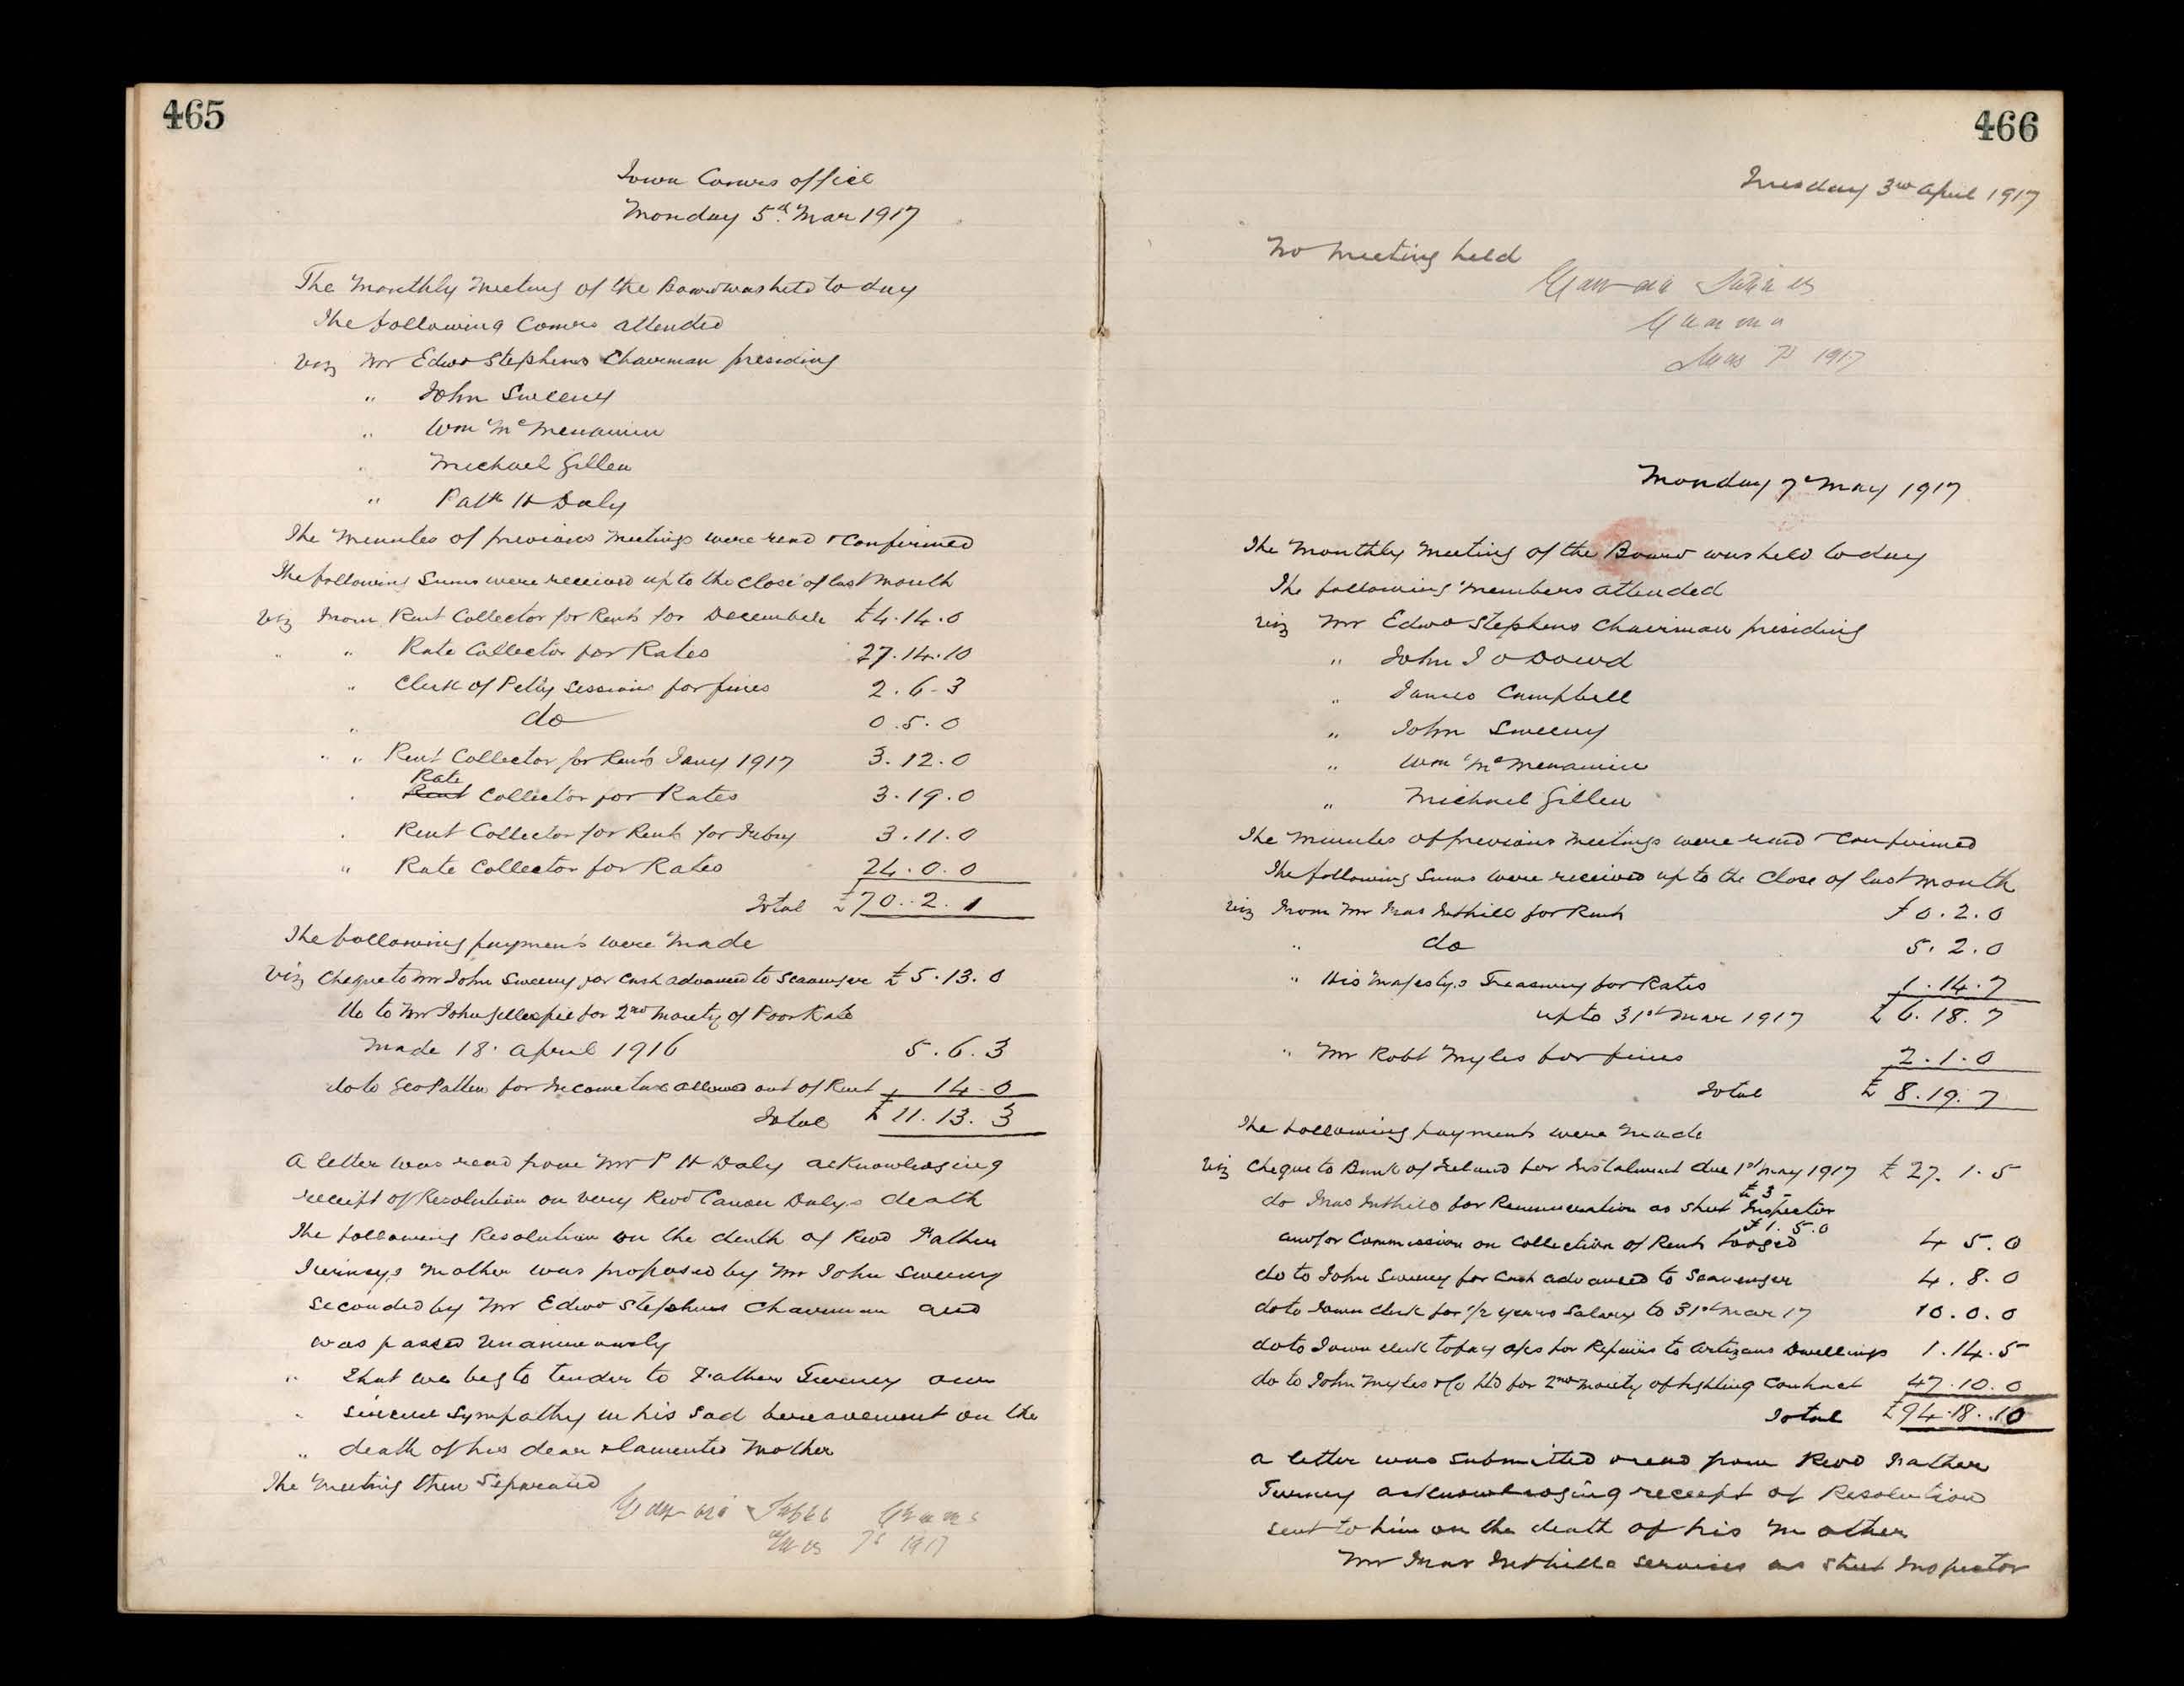 465
Town Comrs office
Monday 5th Mar 1917
The Monthly Meeting of the Board was held to day
The following Comrs attended
Viz Mr Edwd Stephens Chairman presiding
" John Sweeny
" Wm McMenamin
" Michael Gillen
" Patk H Daly
The Minutes of previous Meetings were read & Confirmed
The following Sums were received up to the Close of last Month
Viz From Rent Collector for Rents for December £4.14.0
" " Rate Collector for Rates 27.14.10
" Clerk of Petty Sessions for fines 2.6.3
" do 0.5.0
" " Rent Collector for Rents Jany 1917 3.12.0
Rate
" Rent Collector for Rates 3.19.0
" Rent Collector for Rents for Febry 3.11.0
" Rate Collector for Rates 24.0.0
Total £70.2.1
The following payments were Made
Viz Cheque to Mr John Sweeny for Cash advanced to Scavenger £5.13.0
Do to Mr John Gillespie for 2nd Moiety of Poor Rate
Made 18 April 1916 5.6.3
do to Geo Patten for Income tax allowed out of Rent 14.0
Total £11.13.3
A letter was read from Mr P H Daly acknowledging
receipt of Resolution on Very Revd Canon Dalys death
The following Resolution on the death of Revd Father
Mother was proposed by Mr John Sweeny
seconded by Mr Edwd Stephens Chairman and
was passed Unanimously
" That we beg to tender to Father our
" sincere Sympathy in his Sad bereavement on the
" death of his dear & lamented Mother
The Meeting then Separated
1917
466
Tuesday 3rd April 1917
No Meeting held
1917
Monday 7th May 1917
The Monthly Meeting of the Board was held to day
The following Members attended
viz Mr Edwd Stephens Chairman presiding
" John J O Dowd
" James Campbell
" John Sweeny
" Wm McMenamin
" Michael Gillen
The Minutes of previous Meetings were read & Confirmed
The following Sums were received up to the Close of last Month
viz From Mr for Rents £0.2.0
" do 5.2.0
" His Majestys Treasury for Rates 1.14.7
up to 31st Mar 1917 £6.18.7
" Mr Robt Myles for fines 2.1.0
Total £8.19.7
The following payments were Made
viz Cheque to Bank of Ireland for Instalment due 1st May 1917 £27.1.5
£3
do for Remuneration as Street Inspector
£1.5.0
and for Commission on Collection of Rents lodged 4 5.0
do to John Sweeny for Cash advanced to Scavenger 4.8.0
do to Town Clerk for 1/2 years Salary to 31st Mar 17 10.0.0
do to Town Clerk to pay a/cs for Repairs to Artizans Dwellings 1.14.5
do to John Myles & Co Ltd for 2nd Moiety of lighting Contract 47.10.0
Total £94.18.10
A letter was submitted & read from Revd Father
acknowledging receipt of Resolution
sent to him on the death of his Mother
Mr services as Street Inspector